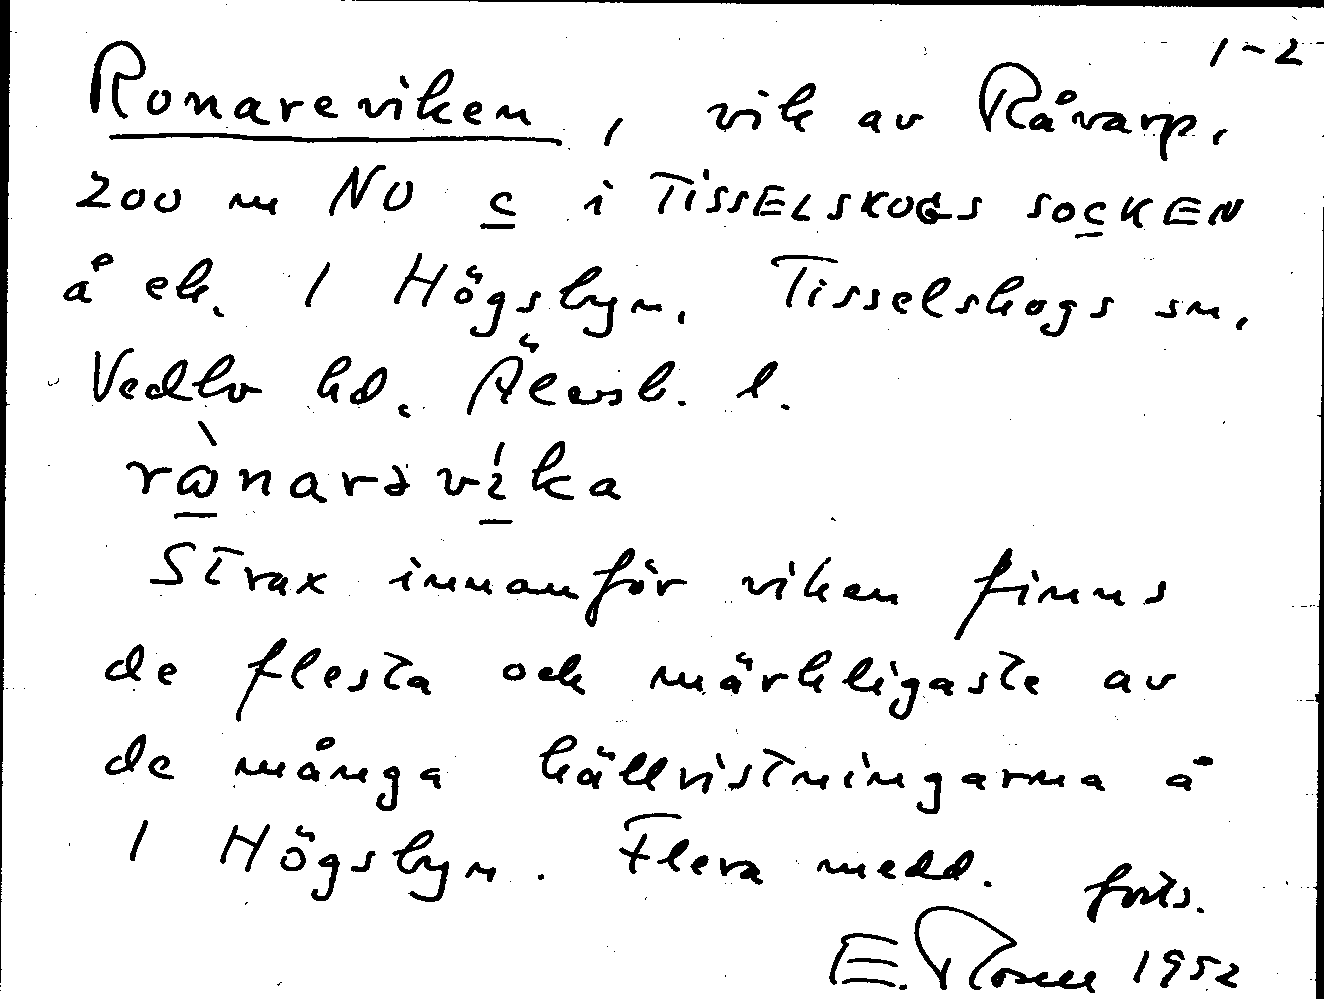 1-2
Ronareviken, vik av Råvarp,
200 m NO c i TISSELSKOGS SOCKEN
å ek. 1 Högsbyn, Tisselskogs sn,
Vedbo hd. Älvsb. l.
Strax innanför viken finns
de flesta och märkligaste av
de många hällristningarna å
1 Högsbyn. Flera medd. forts.
E. Rosell 1952